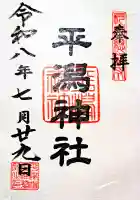 奉拝
平潟神社
令和八年七月廿九日